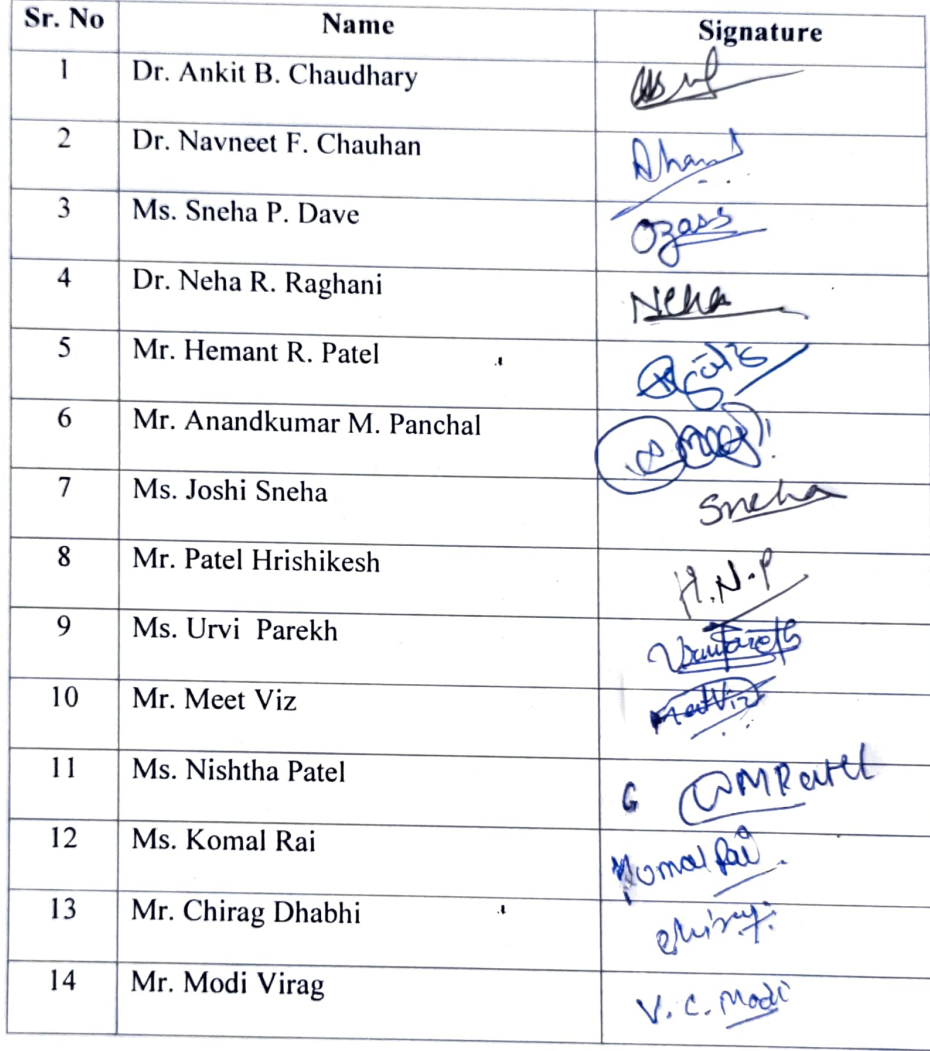 Sr. No Name Signature
1 Dr. Ankit B. Chaudhary
2 Dr. Navneet F. Chauhan
3 Ms. Sneha P. Dave Ozass
4 Dr. Neha R. Raghani Neha
5 Mr. Hemant R. Patel
6 Mr. Anandkumar M. Panchal
7 Ms. Joshi Sneha Sneha
8 Mr. Patel Hrishikesh H.N.P
9 Ms. Urvi Parekh
10 Mr. Meet Viz MeetViz
11 Ms. Nishtha Patel
12 Ms. Komal Rai Komal Rai
13 Mr. Chirag Dhabhi
14 Mr. Modi Virag V. C. Modi